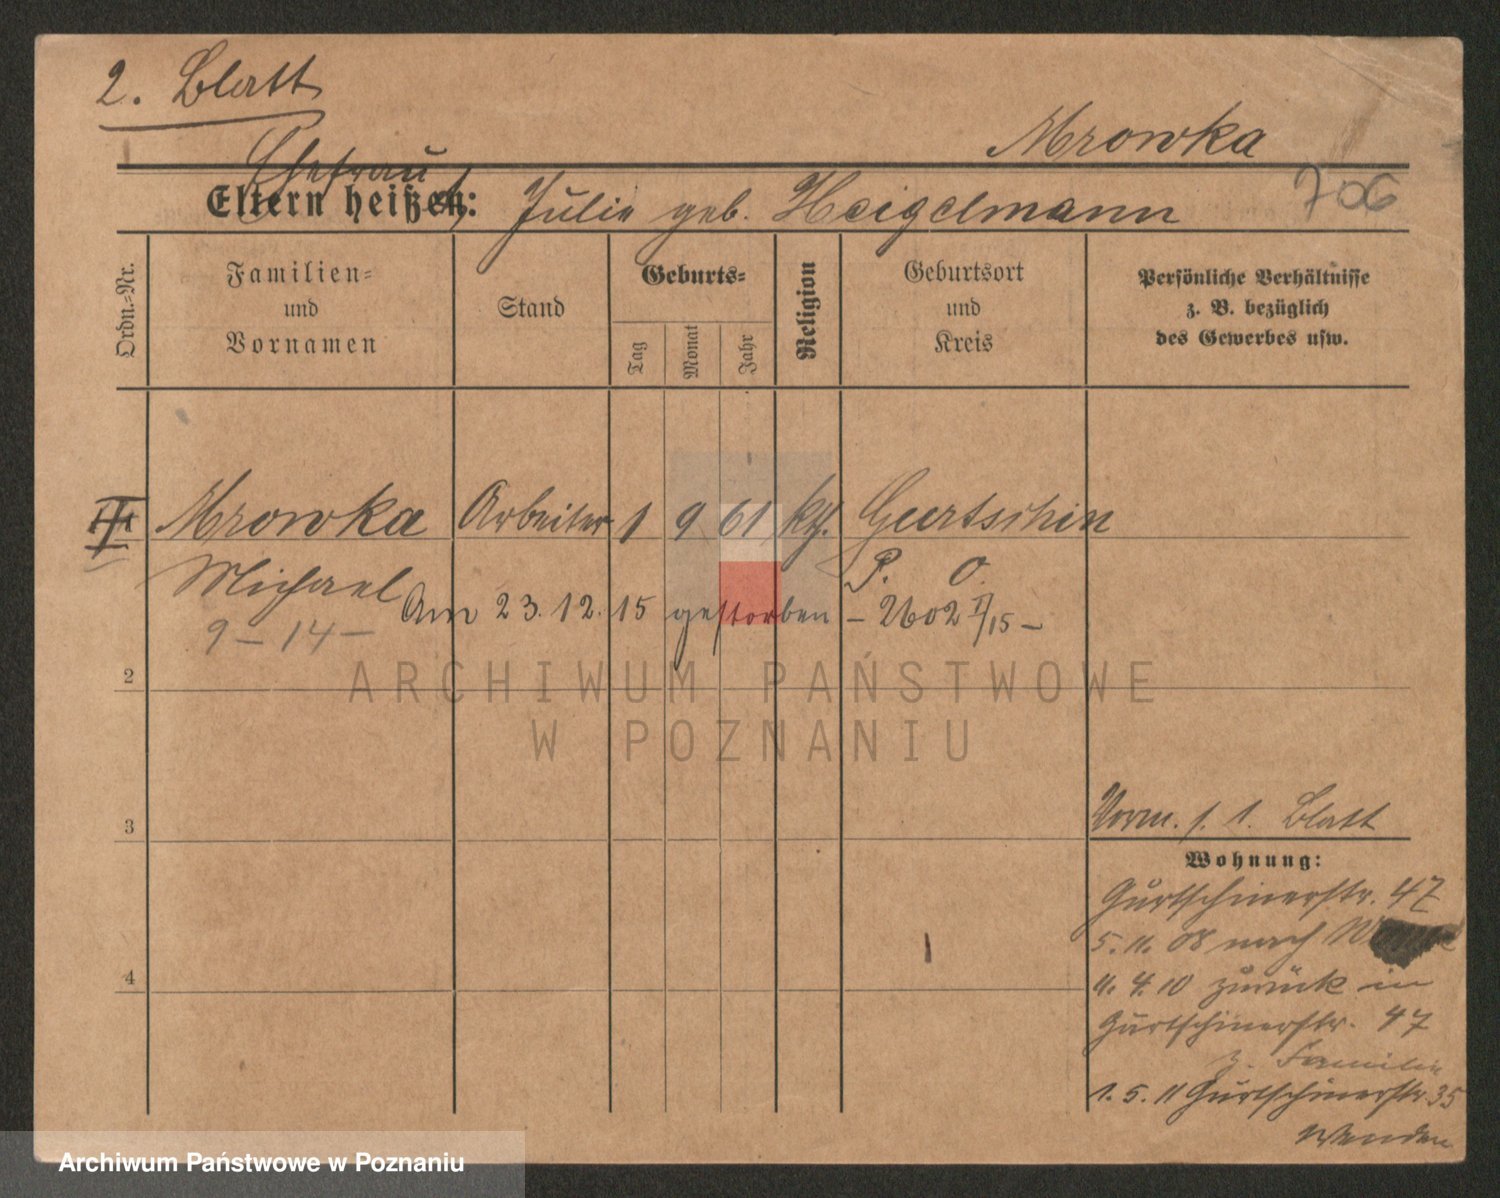 2. Blatt
Mrowka
Ehefrau
Eltern heißen: Julie geb. Heigelmann
706
Ordn.-Nr.
Familien-
und
Vornamen
Stand
Geburts-
Tag
Monat
Jahr
Religion
Geburtsort
und
Kreis
Persönliche Verhältnisse
z. B. bezüglich
des Gewerbes usw.
Mrowka Arbeiter 1 9 61 kth. Gurtschin
Michael P. O.
Am 23. 12. 15 gestorben – 2602 II/15 –
9 – 14 –
2
ARCHIWUM PAŃSTWOWE
W POZNANIU
3
Vorm. s. 1. Blatt
Wohnung:
Gurtschinerstr. 47
5. 11. 08 nach
4
11. 4. 10 zurück in
Gurtschinerstr. 47
z. Familie
1. 5. 11 Gurtschinerstr. 35
Wenden
Archiwum Państwowe w Poznaniu